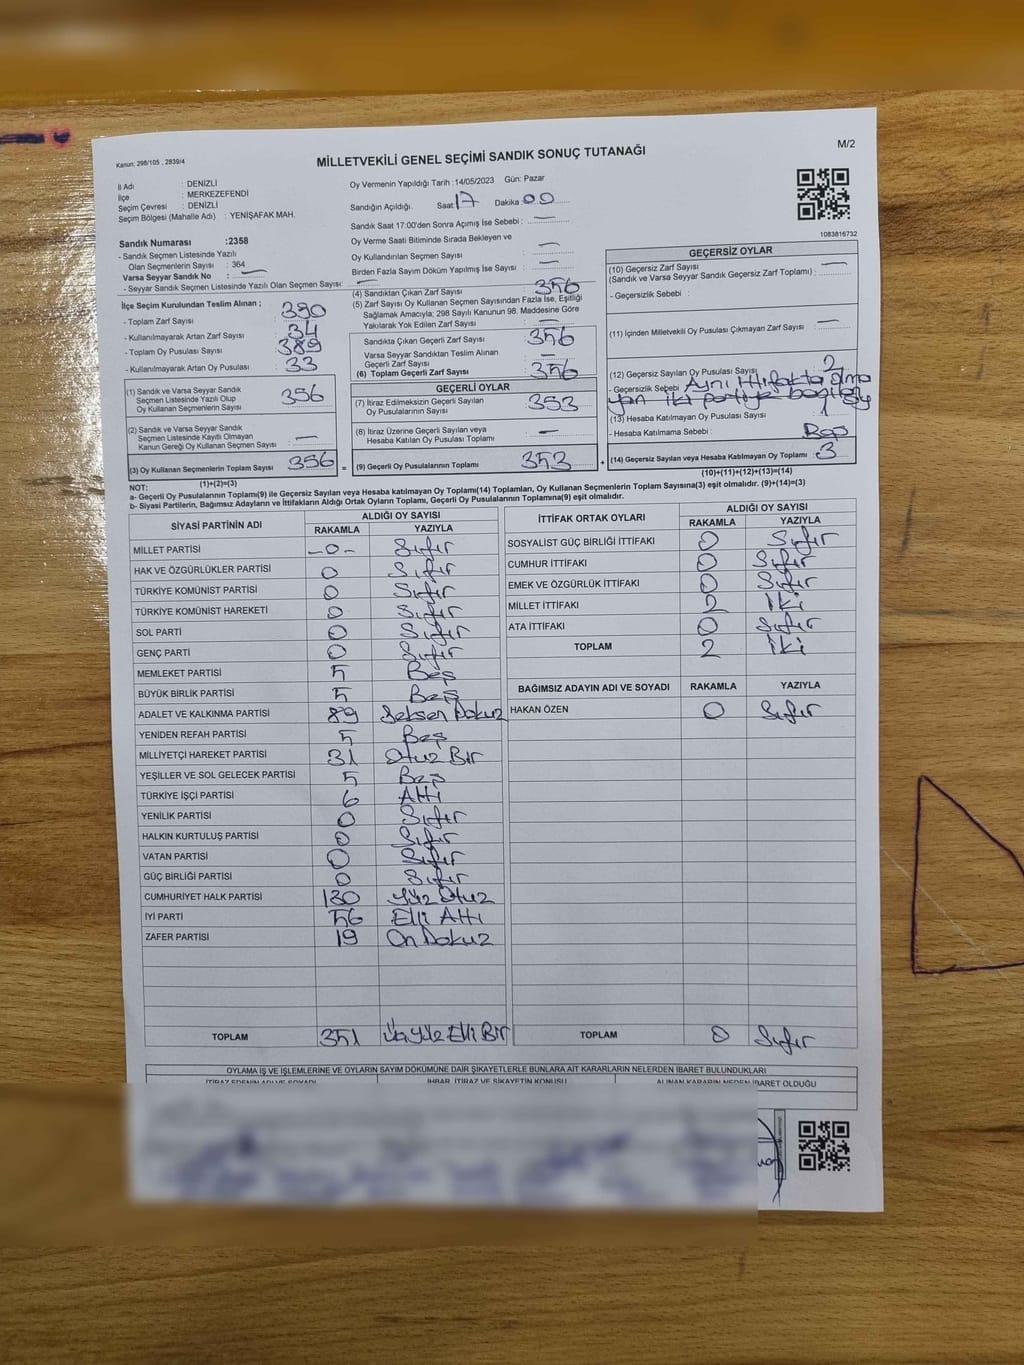 Kanun: 298/105 , 2839/4
M/2
MİLLETVEKİLİ GENEL SEÇİMİ SANDIK SONUÇ TUTANAĞI
İl Adı : DENİZLİ
İlçe : MERKEZEFENDİ
Seçim Çevresi : DENİZLİ
Seçim Bölgesi (Mahalle Adı) : YENİŞAFAK MAH.
Oy Vermenin Yapıldığı Tarih :14/05/2023 Gün: Pazar
Sandığın Açıldığı. Saat 17 Dakika 00
Sandık Saat 17:00'den Sonra Açımış İse Sebebi : —
Oy Verme Saati Bitiminde Sırada Bekleyen ve
Oy Kullandırılan Seçmen Sayısı : —
Birden Fazla Sayım Döküm Yapılmış İse Sayısı : —
1083816732
Sandık Numarası :2358
- Sandık Seçmen Listesinde Yazılı
Olan Seçmenlerin Sayısı : 364
Varsa Seyyar Sandık No : —
- Seyyar Sandık Seçmen Listesinde Yazılı Olan Seçmen Sayısı: —
İlçe Seçim Kurulundan Teslim Alınan ;
- Toplam Zarf Sayısı : 390
- Kullanılmayarak Artan Zarf Sayısı : 34
- Toplam Oy Pusulası Sayısı : 389
- Kullanılmayarak Artan Oy Pusulası : 33
(1) Sandık ve Varsa Seyyar Sandık
Seçmen Listesinde Yazılı Olup
Oy Kullanan Seçmenlerin Sayısı : 356
(2) Sandık ve Varsa Seyyar Sandık
Seçmen Listesinde Kayıtlı Olmayan
Kanun Gereği Oy Kullanan Seçmen Sayısı : —
(3) Oy Kullanan Seçmenlerin Toplam Sayısı 356
(1)+(2)=(3)
(4) Sandıktan Çıkan Zarf Sayısı : 356
(5) Zarf Sayısı Oy Kullanan Seçmen Sayısından Fazla İse, Eşitliği
Sağlamak Amacıyla; 298 Sayılı Kanunun 98. Maddesine Göre
Yakılarak Yok Edilen Zarf Sayısı : —
Sandıkta Çıkan Geçerli Zarf Sayısı : 356
Varsa Seyyar Sandıktan Teslim Alınan
Geçerli Zarf Sayısı : —
(6) Toplam Geçerli Zarf Sayısı : 356
GEÇERLİ OYLAR
(7) İtiraz Edilmeksizin Geçerli Sayılan
Oy Pusulalarının Sayısı : 353
(8) İtiraz Üzerine Geçerli Sayılan veya
Hesaba Katılan Oy Pusulası Toplamı : —
= (9) Geçerli Oy Pusulalarının Toplamı 353 +
GEÇERSİZ OYLAR
(10) Geçersiz Zarf Sayısı —
(Sandık ve Varsa Seyyar Sandık Geçersiz Zarf Toplamı) :
- Geçersizlik Sebebi :
(11) İçinden Milletvekili Oy Pusulası Çıkmayan Zarf Sayısı : —
(12) Geçersiz Sayılan Oy Pusulası Sayısı : 2
- Geçersizlik Sebebi Aynı ittifakta olma
yan iki partiye
(13) Hesaba Katılmayan Oy Pusulası Sayısı : 1
- Hesaba Katılmama Sebebi : Boş
(14) Geçersiz Sayılan veya Hesaba Katılmayan Oy Toplamı 3
(10)+(11)+(12)+(13)=(14)
NOT:
a- Geçerli Oy Pusulalarının Toplamı(9) ile Geçersiz Sayılan veya Hesaba katılmayan Oy Toplamı(14) Toplamları, Oy Kullanan Seçmenlerin Toplam Sayısına(3) eşit olmalıdır. (9)+(14)=(3)
b- Siyasi Partilerin, Bağımsız Adayların ve İttifakların Aldığı Ortak Oyların Toplamı, Geçerli Oy Pusulalarının Toplamına(9) eşit olmalıdır.
SİYASİ PARTİNİN ADI ALDIĞI OY SAYISI
RAKAMLA YAZIYLA
MİLLET PARTİSİ -0- Sıfır
HAK VE ÖZGÜRLÜKLER PARTİSİ 0 Sıfır
TÜRKİYE KOMÜNİST PARTİSİ 0 Sıfır
TÜRKİYE KOMÜNİST HAREKETİ 0 Sıfır
SOL PARTİ 0 Sıfır
GENÇ PARTİ 0 Sıfır
MEMLEKET PARTİSİ 5 Beş
BÜYÜK BİRLİK PARTİSİ 5 Beş
ADALET VE KALKINMA PARTİSİ 89 Seksen Dokuz
YENİDEN REFAH PARTİSİ 5 Beş
MİLLİYETÇİ HAREKET PARTİSİ 31 Otuz Bir
YEŞİLLER VE SOL GELECEK PARTİSİ 5 Beş
TÜRKİYE İŞÇİ PARTİSİ 6 Altı
YENİLİK PARTİSİ 0 Sıfır
HALKIN KURTULUŞ PARTİSİ 0 Sıfır
VATAN PARTİSİ 0 Sıfır
GÜÇ BİRLİĞİ PARTİSİ 0 Sıfır
CUMHURİYET HALK PARTİSİ 130 Yüz Otuz
İYİ PARTİ 56 Elli Altı
ZAFER PARTİSİ 19 On Dokuz
TOPLAM 351 Üç Yüz Elli Bir
İTTİFAK ORTAK OYLARI ALDIĞI OY SAYISI
RAKAMLA YAZIYLA
SOSYALİST GÜÇ BİRLİĞİ İTTİFAKI 0 Sıfır
CUMHUR İTTİFAKI 0 Sıfır
EMEK VE ÖZGÜRLÜK İTTİFAKI 0 Sıfır
MİLLET İTTİFAKI 2 İki
ATA İTTİFAKI 0 Sıfır
TOPLAM 2 İki
BAĞIMSIZ ADAYIN ADI VE SOYADI RAKAMLA YAZIYLA
HAKAN ÖZEN 0 Sıfır
TOPLAM 0 Sıfır
OYLAMA İŞ VE İŞLEMLERİNE VE OYLARIN SAYIM DÖKÜMÜNE DAİR ŞİKAYETLERLE BUNLARA AİT KARARLARIN NELERDEN İBARET BULUNDUKLARI
İTİRAZ EDENİN ADI VE SOYADI İHBAR, İTİRAZ VE ŞİKAYETİN KONUSU ALINAN KARARIN NEDEN İBARET OLDUĞU